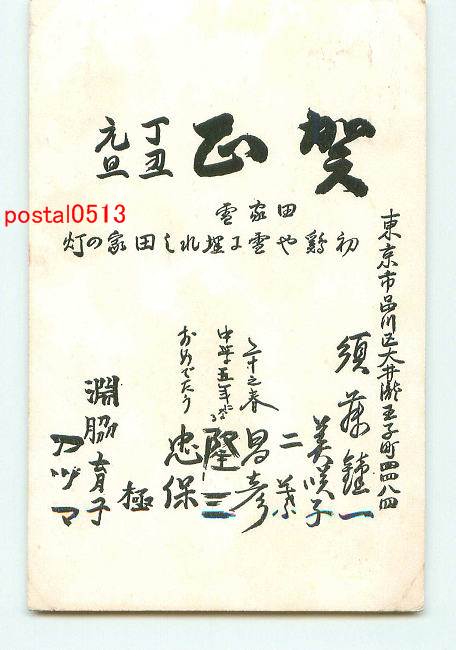 賀正
丁丑
元旦
田家雪
初鶏や雪に埋れし田家の灯
東京市品川区大井滝王子町四四八四
須藤鐘一
美咲子
二葉
二十之春
昌彦
中学五年デス
隆三
おめでたう
忠保
極
淵脇育子
カヅマ
postal0513